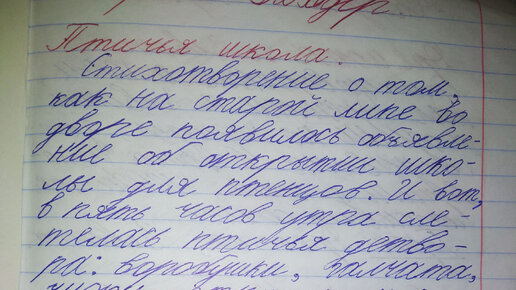 Птичья школа.
Стихотворение о том,
как на старой липе во
дворе появилось объявле-
ние об открытии шко-
лы для птенцов. И вот,
в пять часов утра сле-
телась птичья детво-
ра: воробушки, галчата,